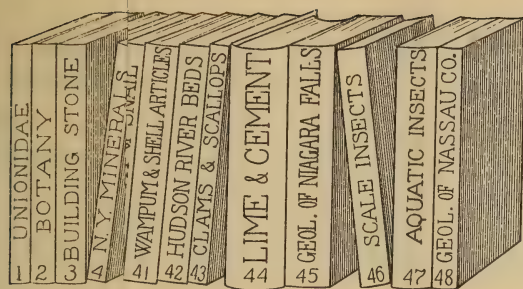 UNIONIDAE
1
BOTANY
2
BUILDING STONE
3
N.Y. MINERALS
4
WAMPUM & SHELL ARTICLES
41
HUDSON RIVER BEDS
42
CLAMS & SCALLOPS
43
LIME & CEMENT
44
GEOL. OF NIAGARA FALLS
45
SCALE INSECTS
46
AQUATIC INSECTS
47
GEOL. OF NASSAU CO.
48